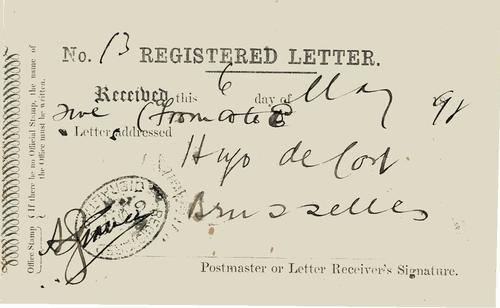 No. 13 REGISTERED LETTER.
Received this 6 day of May 98
Five
Letter addressed
Hugo de
Brusselles
Postmaster or Letter Receiver's Signature.
Office Stamp (If there be no Official Stamp, the name of
the Office must be written.